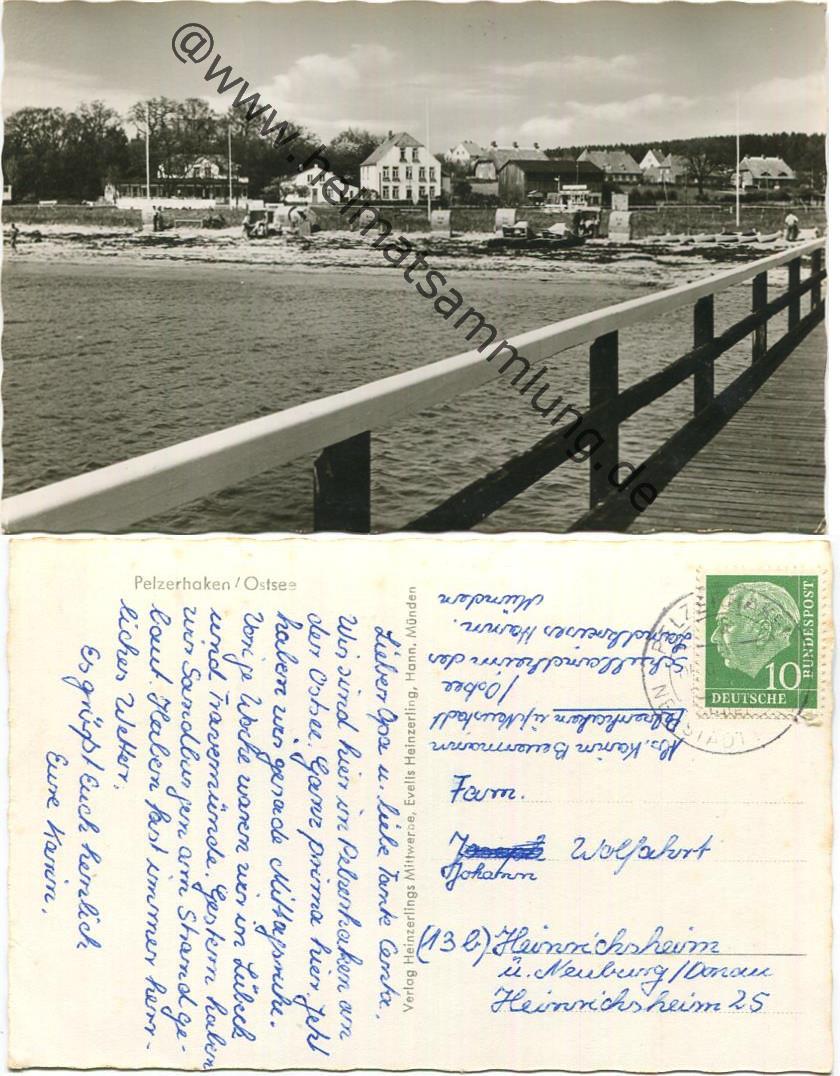 @www.heimatsammlung.de
Pelzerhaken / Ostsee
Lieber Opa u. liebe Tante Centa.
Wir sind hier in Pelzerhaken an
der Ostsee. Ganz prima hier. Jetzt
haben wir gerade Mittagsruhe.
Vorige Woche waren wir in Lübeck
und Travemünde. Gestern haben
wir Sandburgen am Strand ge-
baut. Haben fast immer herr-
liches Wetter.
Es grüßt Euch herzlich
Eure Karin.
Verlag Heinzerlings Mittwerbe, Evelis Heinzerling, Hann. Münden
Abs. Karin Beuermann
Pelzerhaken ü/Neustadt
/Ostsee
Schullandheim des
Landkreises Hann.
Münden
10
DEUTSCHE
BUNDESPOST
PELZERHAKEN
NEUSTADT
Fam.
Johann Wolfahrt
(13b) Heinrichsheim
ü. Neuburg/Donau
Heinrichsheim 25